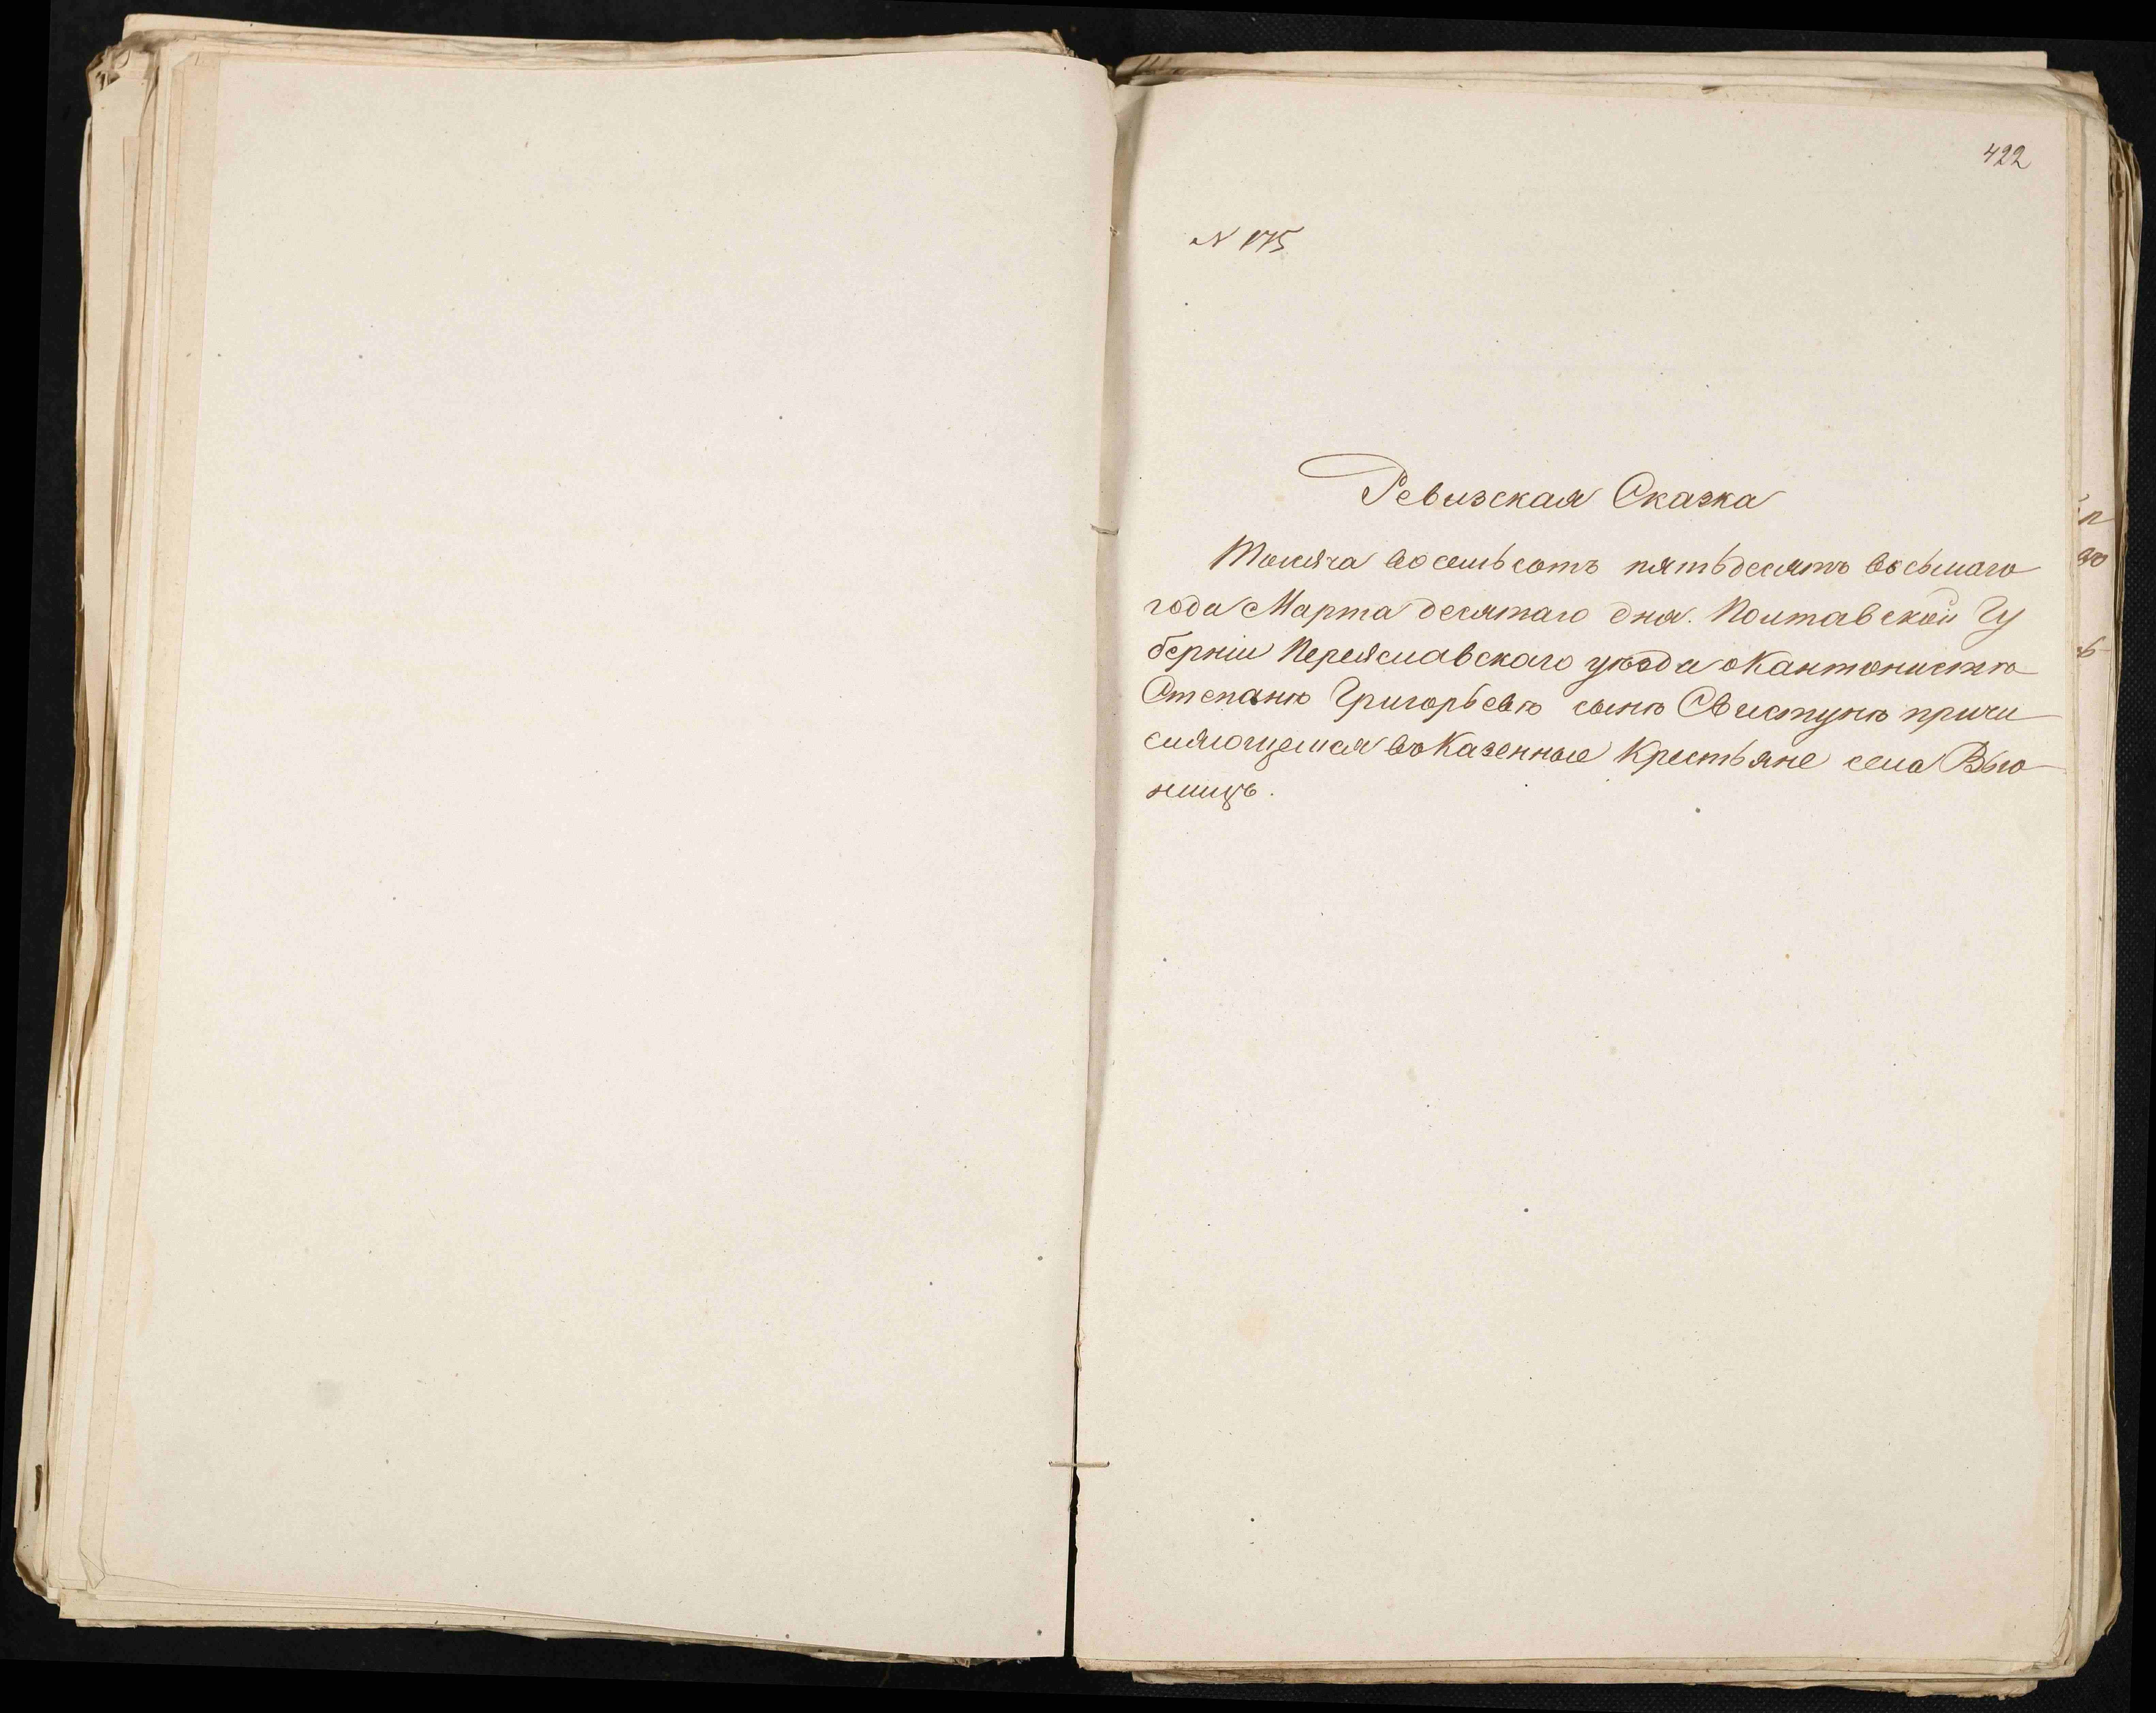 422
N 175
Ревизская Сказка
Тысяча восемьсотъ пятьдесятъ восьмаго
года Марта десятаго дня. Полтавской Гу
берніи Переяславскаго уѣзда о Кантонистѣ
Степанѣ Григорьевѣ сынѣ Свистунѣ причи
сляющемся въ Казенные Крестьяне села Вью
нищъ.